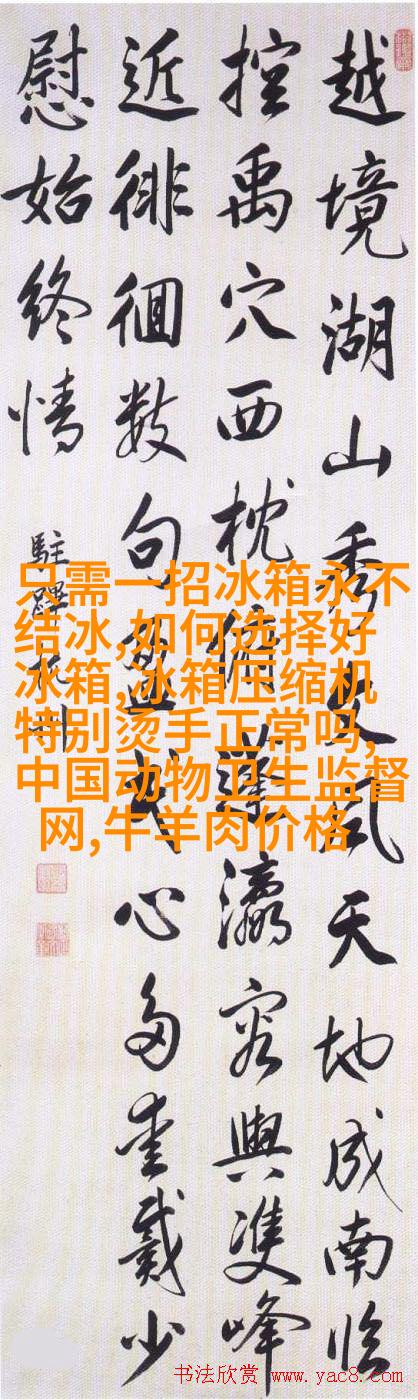 越境湖山秀文風天地成南临
控禹穴西枕蓬瀛容與雙峰
近徘徊数句民心多爱戴少
慰始終情
駐蹕杭州
只需一招冰箱永不
结冰,如何选择好
冰箱,冰箱压缩机
特别烫手正常吗,
中国动物卫生监督
网,牛羊肉价格
书法欣赏 www.yac8.com